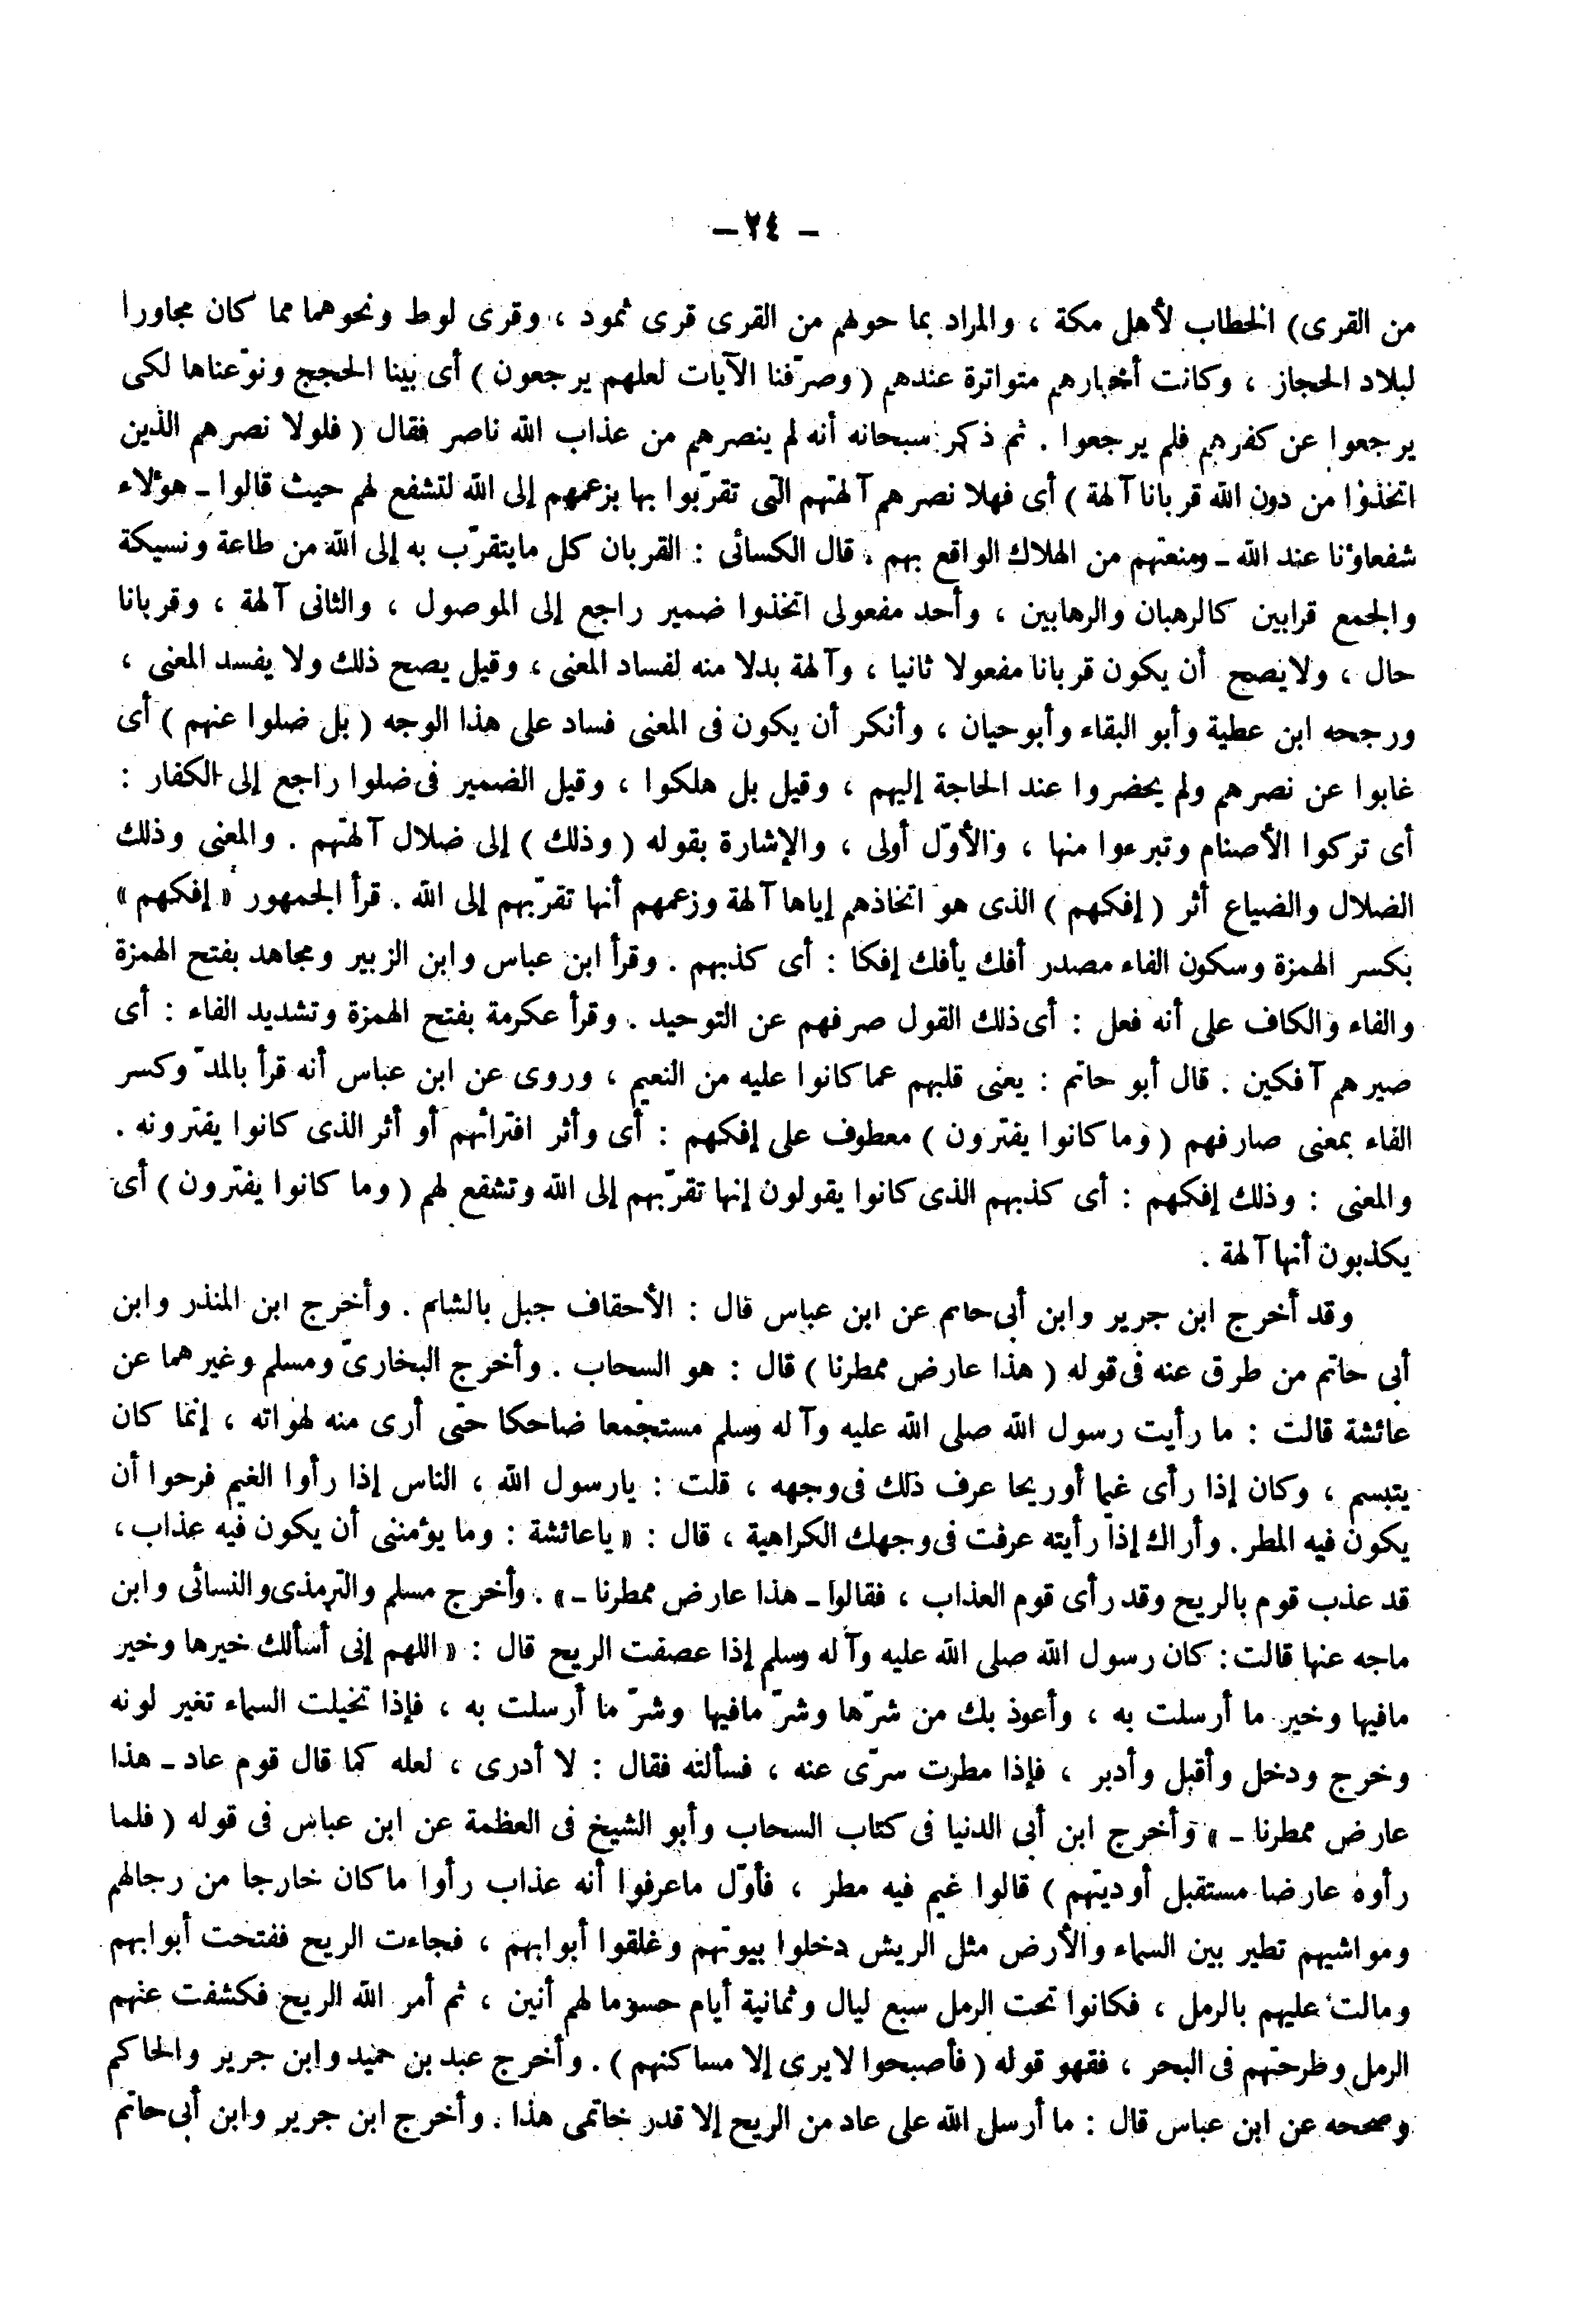 – ٢٤ –
من القرى) الخطاب لأهل مكة ، والمراد بما حولهم من القرى قرى ثمود ، وقرى لوط ونحوهما مما كان مجاورا
لبلاد الحجاز ، وكانت أخبارهم متواترة عندهم ( وصرّفنا الآيات لعلهم يرجعون ) أى بينا الحجج ونوّعناها لكى
يرجعوا عن كفرهم فلم يرجعوا . ثم ذكر سبحانه أنه لم ينصرهم من عذاب الله ناصر فقال ( فلولا نصرهم الذين
اتخذوا من دون الله قربانا آلهة ) أى فهلا نصرهم آلهتهم التى تقرّبوا بها بزعمهم إلى الله لتشفع لهم حيث قالوا ـ هؤلاء
شفعاؤنا عند الله ـ ومنعتهم من الهلاك الواقع بهم . قال الكسائى : القربان كل مايتقرّب به إلى الله من طاعة ونسيكة
والجمع قرابين كالرهبان والرهابين ، وأحد مفعولى اتخذوا ضمير راجع إلى الموصول ، والثانى آلهة ، وقربانا
حال ، ولايصح أن يكون قربانا مفعولا ثانيا ، وآلهة بدلا منه لفساد المعنى ، وقيل يصح ذلك ولا يفسد المعنى ،
ورجحه ابن عطية وأبو البقاء وأبوحيان ، وأنكر أن يكون فى المعنى فساد على هذا الوجه ( بل ضلوا عنهم ) أى
غابوا عن نصرهم ولم يحضروا عند الحاجة إليهم ، وقيل بل هلكوا ، وقيل الضمير فى ضلوا راجع إلى الكفار :
أى تركوا الأصنام وتبرءوا منها ، والأوّل أولى ، والإشارة بقوله ( وذلك ) إلى ضلال آلهتهم . والمعنى وذلك
الضلال والضياع أثر ( إفكهم ) الذى هو اتخاذهم إياها آلهة وزعمهم أنها تقرّبهم إلى الله . قرأ الجمهور « إفكهم »
بكسر الهمزة وسكون الفاء مصدر أفك يأفك إفكا : أى كذبهم . وقرأ ابن عباس وابن الزبير ومجاهد بفتح الهمزة
والفاء والكاف على أنه فعل : أى ذلك القول صرفهم عن التوحيد . وقرأ عكرمة بفتح الهمزة وتشديد الفاء : أى
صيرهم آفكين . قال أبو حاتم : يعنى قلبهم عما كانوا عليه من النعيم ، وروى عن ابن عباس أنه قرأ بالمدّ وكسر
الفاء بمعنى صارفهم ( وما كانوا يفترون ) معطوف على إفكهم : أى وأثر افترائهم أو أثر الذى كانوا يفترونه .
والمعنى : وذلك إفكهم : أى كذبهم الذى كانوا يقولون إنها تقرّبهم إلى الله وتشفع لهم ( وما كانوا يفترون ) أى
يكذبون أنها آلهة .
وقد أخرج ابن جرير وابن أبى حاتم عن ابن عباس قال : الأحقاف جبل بالشام . وأخرج ابن المنذر وابن
أبى حاتم من طرق عنه فى قوله ( هذا عارض ممطرنا ) قال : هو السحاب . وأخرج البخارىّ ومسلم وغيرهما عن
عائشة قالت : ما رأيت رسول الله صلى الله عليه وآله وسلم مستجمعا ضاحكا حتى أرى منه لهواته ، إنما كان
يتبسم ، وكان إذا رأى غيما أوريحا عرف ذلك فى وجهه ، قلت : يارسول الله ، الناس إذا رأوا الغيم فرحوا أن
يكون فيه المطر . وأراك إذا رأيته عرفت فى وجهك الكراهية ، قال : « ياعائشة : وما يؤمننى أن يكون فيه عذاب ،
قد عذب قوم بالريح وقد رأى قوم العذاب ، فقالوا ـ هذا عارض ممطرنا ـ » . وأخرج مسلم والترمذى والنسائى وابن
ماجه عنها قالت : كان رسول الله صلى الله عليه وآله وسلم إذا عصفت الريح قال : « اللهم إنى أسألك خيرها وخير
مافيها وخير ما أرسلت به ، وأعوذ بك من شرّها وشرّ مافيها وشرّ ما أرسلت به ، فإذا تخيلت السماء تغير لونه
وخرج ودخل وأقبل وأدبر ، فإذا مطرت سرّى عنه ، فسألته فقال : لا أدرى ، لعله كما قال قوم عاد ـ هذا
عارض ممطرنا ـ » وأخرج ابن أبى الدنيا فى كتاب السحاب وأبو الشيخ فى العظمة عن ابن عباس فى قوله ( فلما
رأوه عارضا مستقبل أوديتهم ) قالوا غيم فيه مطر ، فأوّل ماعرفوا أنه عذاب رأوا ماكان خارجا من رجالهم
ومواشيهم تطير بين السماء والأرض مثل الريش دخلوا بيوتهم وغلقوا أبوابهم ، فجاءت الريح ففتحت أبوابهم
ومالت عليهم بالرمل ، فكانوا تحت الرمل سبع ليال وثمانية أيام حسوما لهم أنين ، ثم أمر الله الريح فكشفت عنهم
الرمل وطرحتهم فى البحر ، فقهو قوله ( فأصبحوا لايرى إلا مساكنهم ) . وأخرج عبد بن حميد وابن جرير والحاكم
وصححه عن ابن عباس قال : ما أرسل الله على عاد من الريح إلا قدر خاتمى هذا . وأخرج ابن جرير وابن أبى حاتم